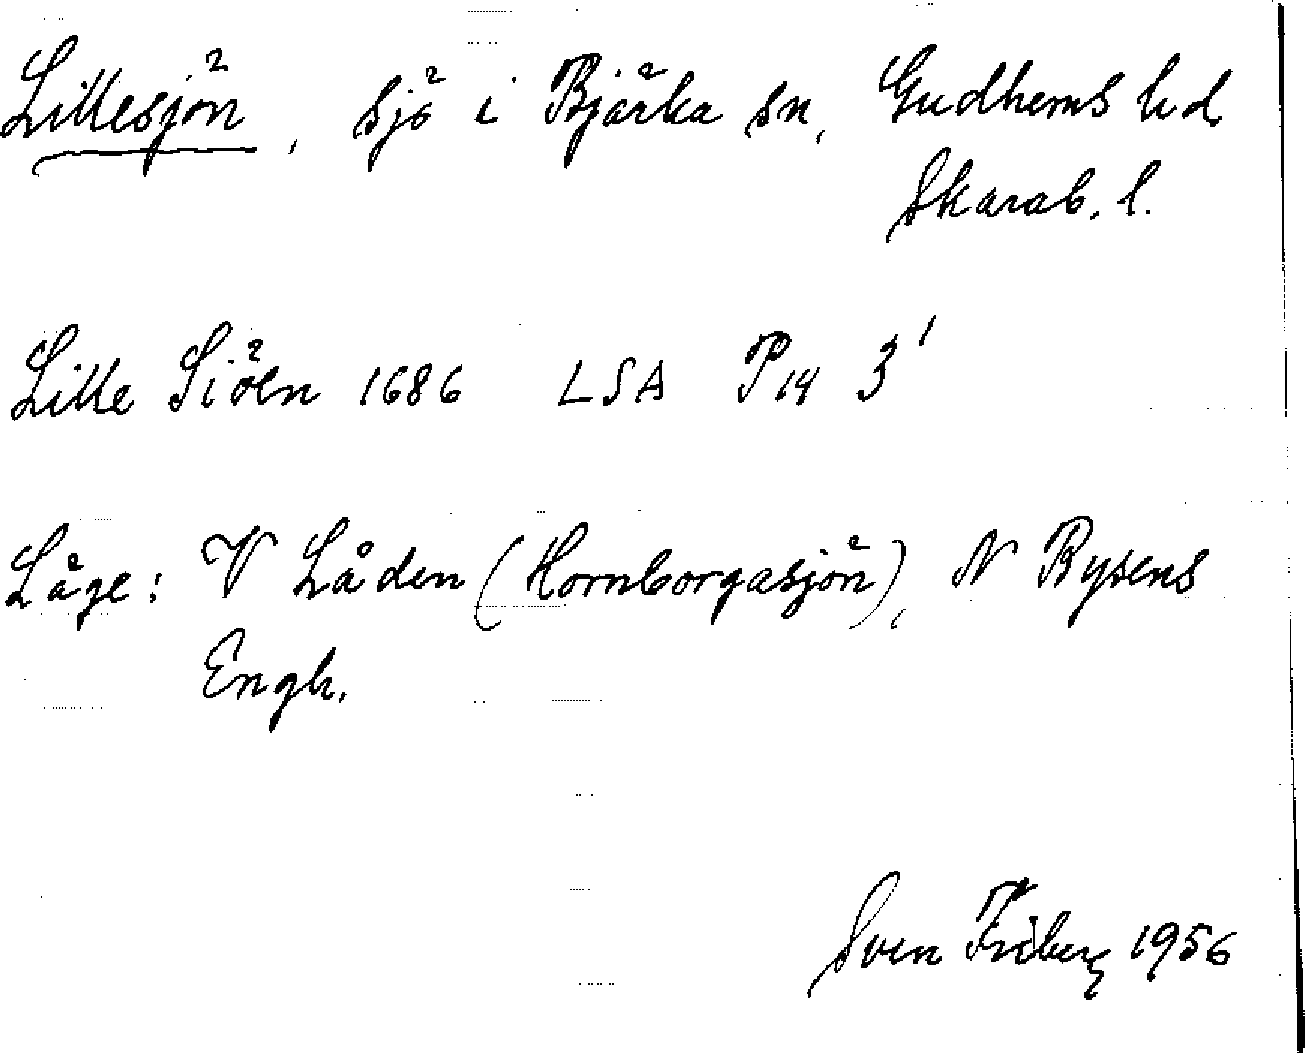 Lillesjön, sjö i Bjärka sn, Gudhems hd
Skarab. l.
Lille Siöen 1686 LSA P14 3¹
Läge: V Låden (Hornborgasjön), N Rysens
Engh.
Sven Friberg 1956